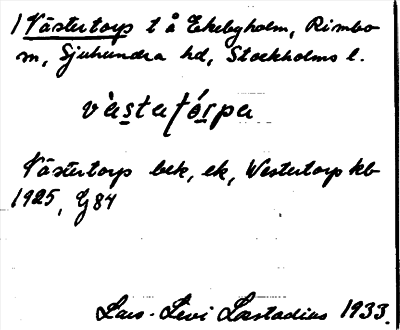 1 Västertorp t å Ekebyholm, Rimbo
sn, Sjuhundra hd, Stockholms l.
vàstatórpa
Västertorp bek, ek, Westertorp kb
1925, G 84
Lars-Levi Læstadius 1933.